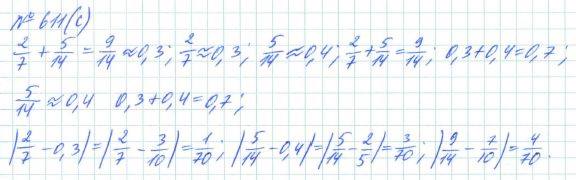 № 611(с)
2/7 + 5/14 = 9/14 ≈ 0,3; 2/7 ≈ 0,3; 5/14 ≈ 0,4; 2/7 + 5/14 = 9/14; 0,3+0,4=0,7;
5/14 ≈ 0,4 0,3+0,4=0,7;
|2/7 − 0,3| = |2/7 − 3/10| = 1/70; |5/14 − 0,4| = |5/14 − 2/5| = 3/70; |9/14 − 7/10| = 4/70.